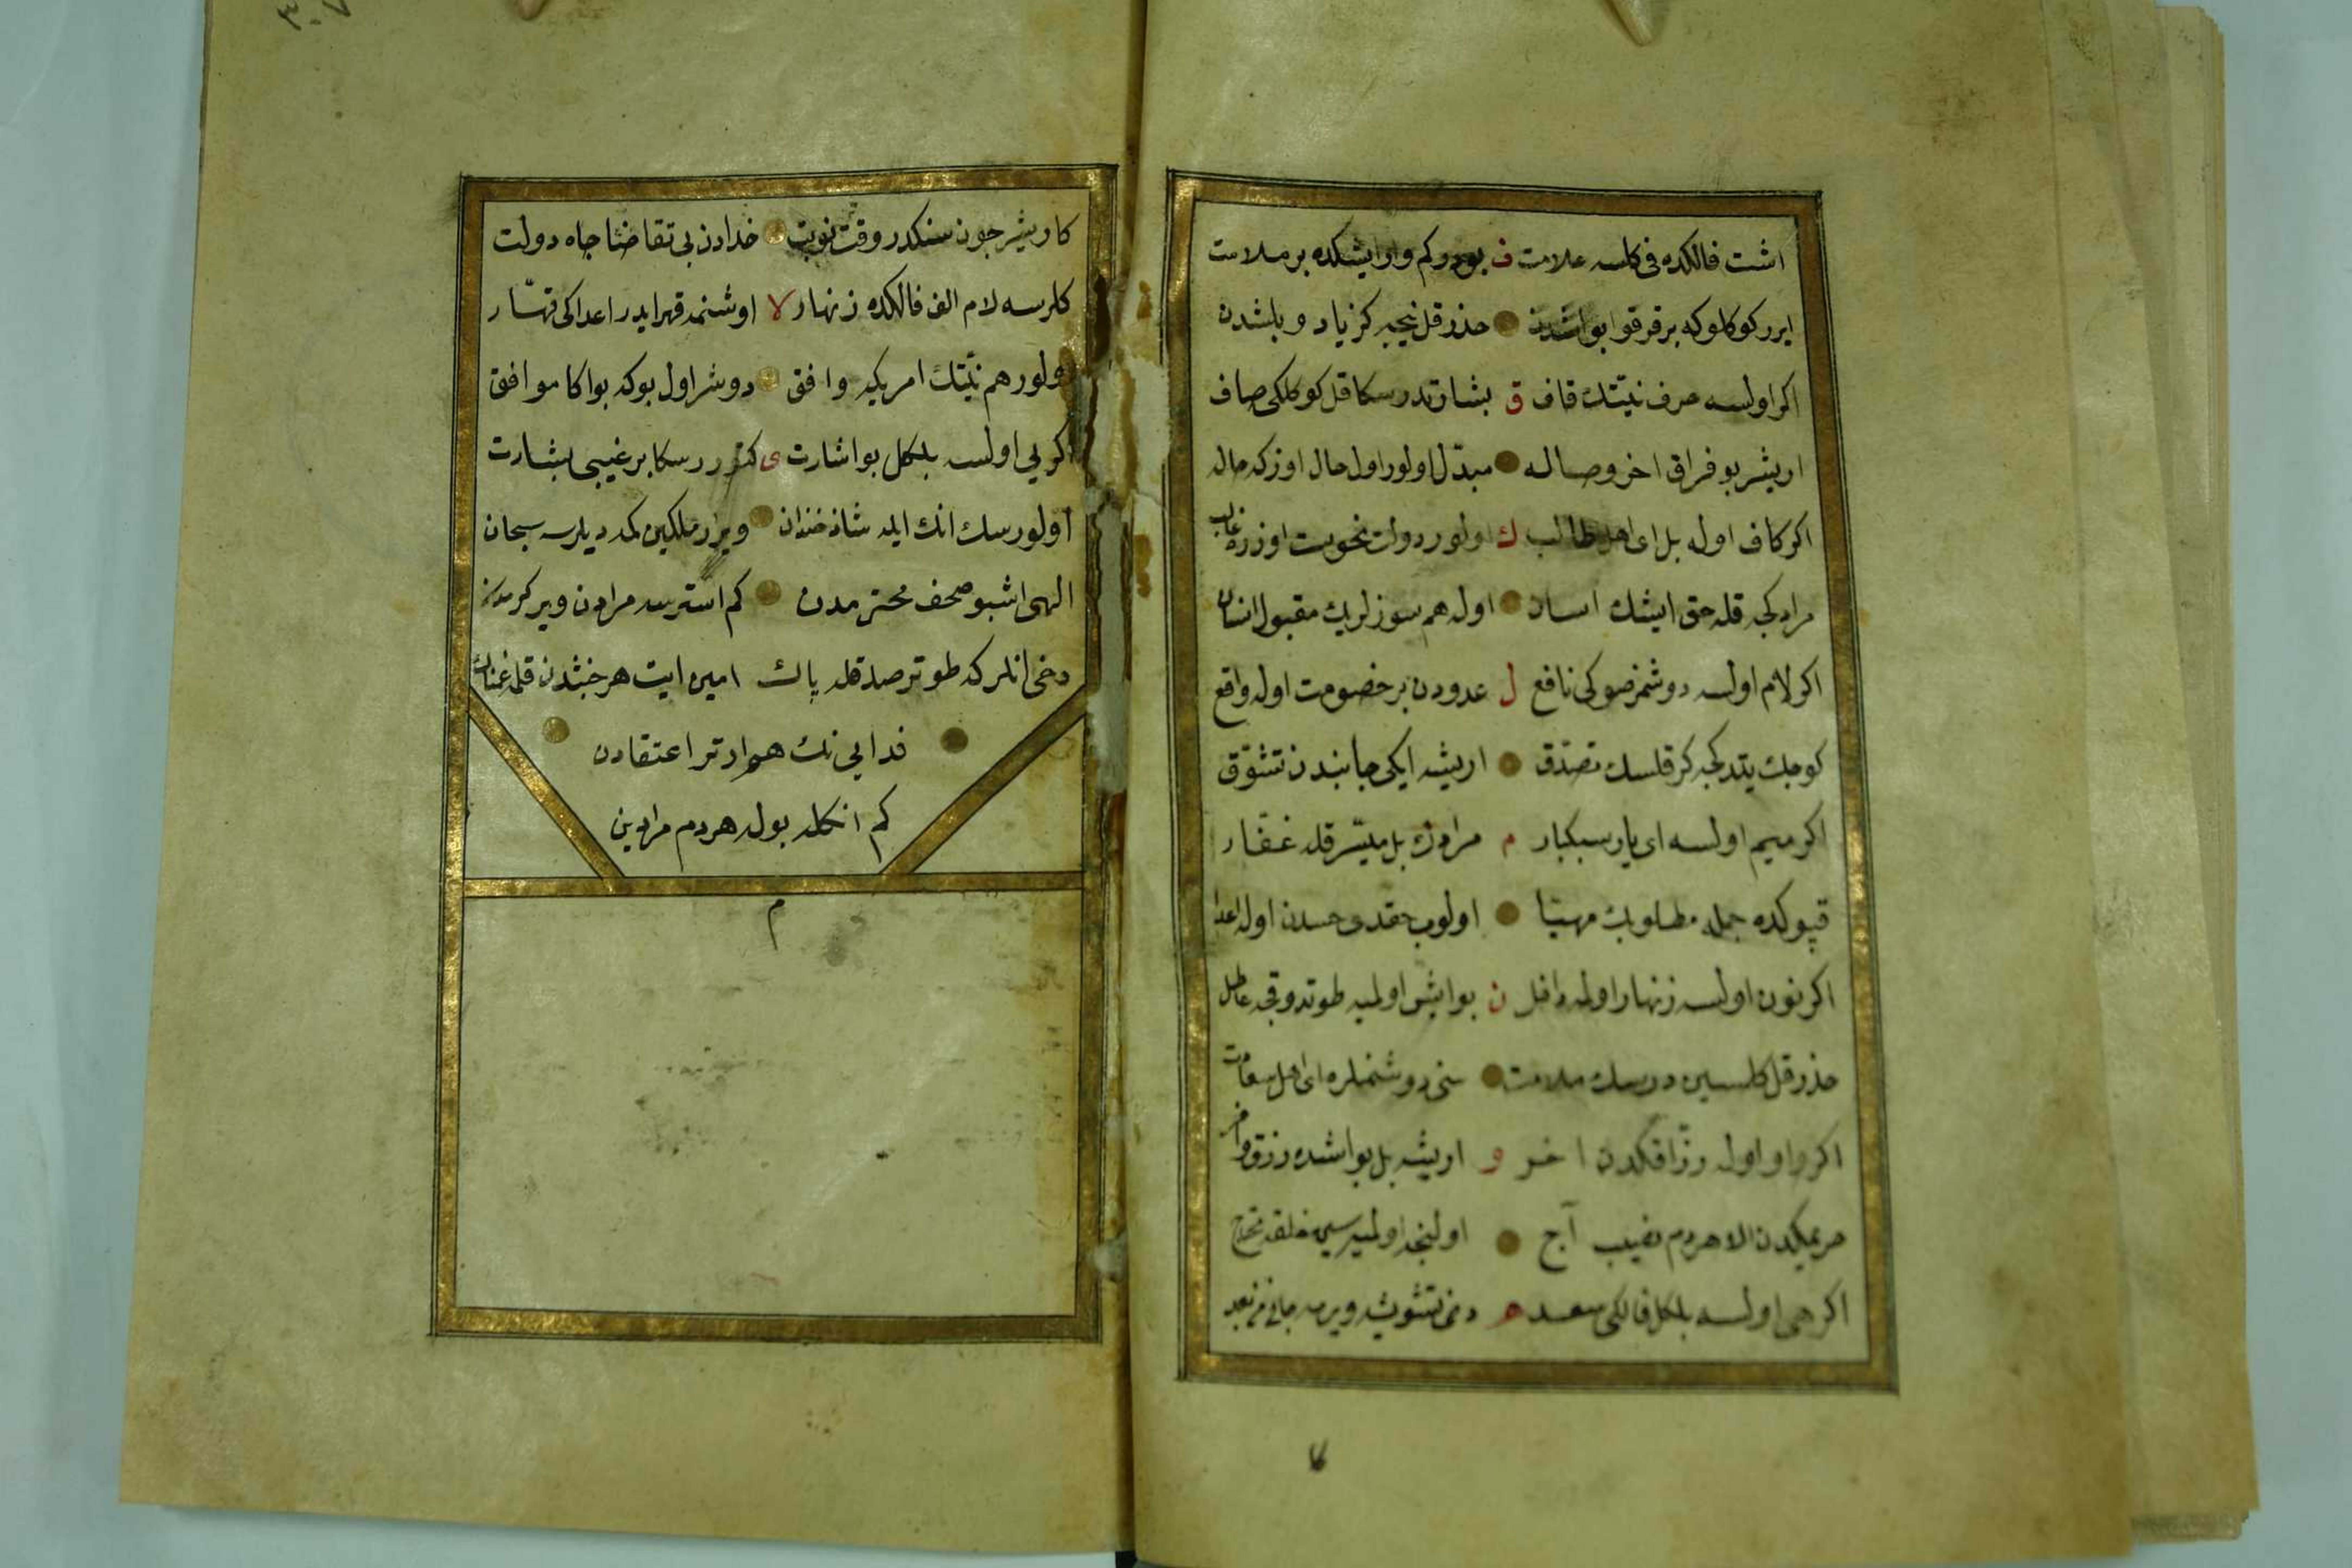 اشت فالكده فى كلسه علامت ف بودر كم وار ايشكده بر ملامت
ايرر كوكلوكه بر قرقو بو اشدن حذر قل نيجه كز ياد و بلشدن
اكر اولسه حرف نيّتك قاف ق بشارتدر سكا قل كوكلكى صاف
اريشر بو فراق اخر وصاله مبدّل اولور اول حال اوزكه حاله
اكر كاف اوله بل اى اهل طالب ك اولور دولت نحوست اوزره غالب
مرادكجه قله حق ايشك اسان اوله هم سوزلريك مقبول انسان
اكر لام اولسه دوشمز صوكى نافع ل عدودن بر خصومت اوله واقع
كوجك يتدكجه كر قلسك تصدّق اريشه ايكى جانبدن تشوّق
اكر ميم اولسه اى يار سبكبار م مرادك بل ميسّر قله غفّار
قپوكده جمله مطلوبك مهيّا اولوب حقدى حسدن اوله اعدا
اكر نون اولسه زنهار اولمه داخل ن بو ايش اولميه طوتدوقجه عاطل
حذر قل كلسين درسك ملامت سنى دوشمنلره اى اهل سعادت
اكر واو اوله رزّاقكدن اخر و اريشه بل بو اشده رزق وافر
حريمكدن الا هردم نصيب آج اولنجه اولميه سين خلقه محتاج
اكر هى اولسه بلكل فالكى سعد ه دخى تشويشه ويرمه جانى من بعد
كاريشر جون سنكدر وقت نوبت خدادن بى تقاضا جاه دولت
كلرسه لام الف فالكده زنهار لا اوشنمه قهر ايدر اعداكى قهّار
اولور هم نيّتك امريكه وافق دوشر اول بوكه بو اكا موافق
اكر يى اولسه بلكل بو اشارت ى كتورر سكا بر غيبى بشارت
اولورسك انك ايله شاد خندان ويرر ملكين كمه ديلرسه سبحان
الهى اشبو صحف محترمدن كم استرسه مرادن وير كرمدن
دخى انلر كه طوتر صدقله پاك امين ايت هر خبثدن قلمه غمناك
فدايى نك هم ارتر اعتقادن
كم انكله بوله هردم مرادين
م